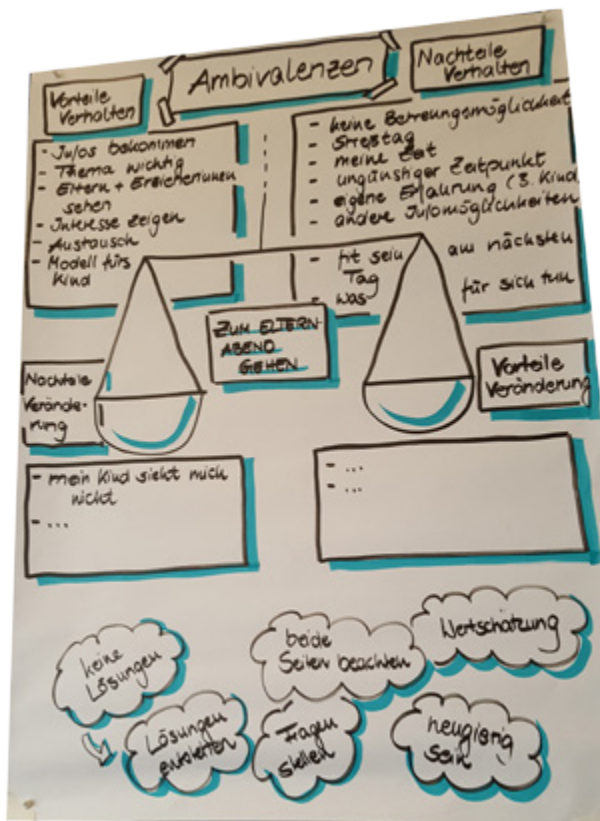 Ambivalenzen
Vorteile
Verhalten
- Infos bekommen
- Thema wichtig
- Eltern + Erzieherinnen
sehen
- Interesse zeigen
- Austausch
- Modell fürs
Kind
Nachteile
Verhalten
- keine Betreuungsmöglichkeit
- Streßtag
- meine Zeit
- ungünstiger Zeitpunkt
- eigene Erfahrung (3. Kind
- andere Infomöglichkeiten
- fit sein am nächsten
Tag
- was für sich tun
ZUM ELTERN-
ABEND
GEHEN
Nachteile
Verände-
rung
- mein Kind sieht mich
nicht
- ...
Vorteile
Veränderung
- ...
- ...
keine
Lösungen
Lösungen
beide
Seiten beachten
Fragen
stellen
Wertschätzung
neugierig
sein